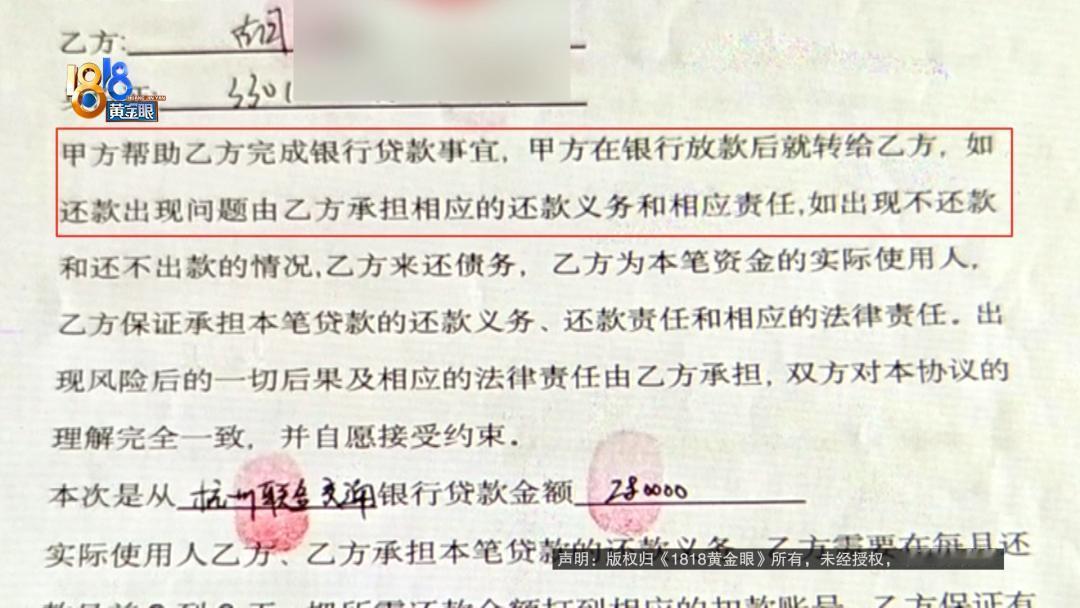 乙方:
3301
1818
黄金眼
甲方帮助乙方完成银行贷款事宜，甲方在银行放款后就转给乙方，如
还款出现问题由乙方承担相应的还款义务和相应责任,如出现不还款
和还不出款的情况,乙方来还债务，乙方为本笔资金的实际使用人，
乙方保证承担本笔贷款的还款义务、还款责任和相应的法律责任。出
现风险后的一切后果及相应的法律责任由乙方承担，双方对本协议的
理解完全一致，并自愿接受约束。
本次是从 杭州联合 银行贷款金额 280000
实际使用人乙方、乙方承担本笔贷款的还款义务、乙方需要在每月还
声明：版权归《1818黄金眼》所有，未经授权，
把所需还款金额打到相应的扣款账号，乙方保证有